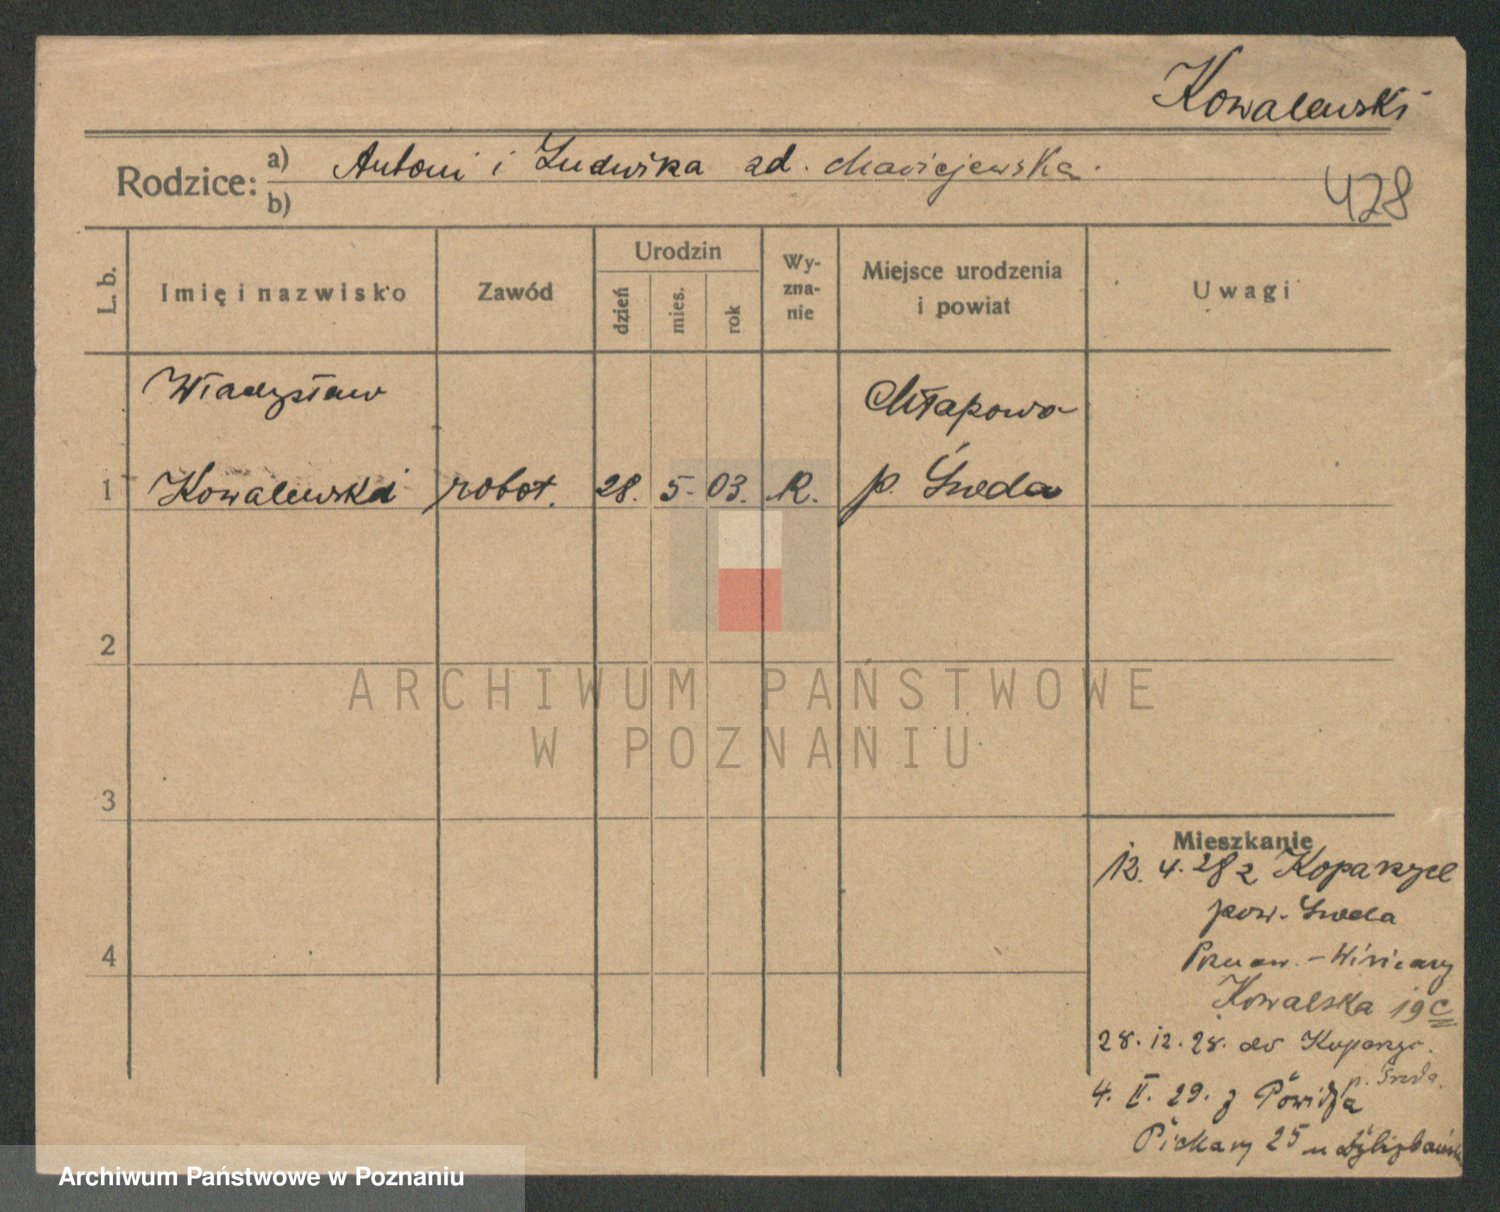 Kowalewski
Rodzice: a) Antoni i Ludwika zd. Maciejewska.
b)
428
L. b.
Imię i nazwisko
Zawód
Urodzin
dzień
mies.
rok
Wy-
zna-
nie
Miejsce urodzenia
i powiat
Uwagi
Władysław
Chłapowo
1 Kowalewski robot. 28. 5. 03. R. p. Środa
2
3
4
ARCHIWUM PAŃSTWOWE
W POZNANIU
Mieszkanie
12. 4. 28 z
pow. Środa
Poznań. - Winiary
Kowalska 19 c
28. 12. 28. do
p. Środa.
4. II. 29. z Powidza
Piekary 25 u
Archiwum Państwowe w Poznaniu